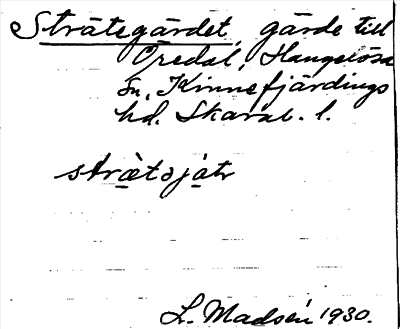 Stråtsgärdet, gärde till
Öredal, Hangelösa
sn, Kinnefjärdings
hd. Skarab. l.
stràtsjàtr
L. Madsén 1930.